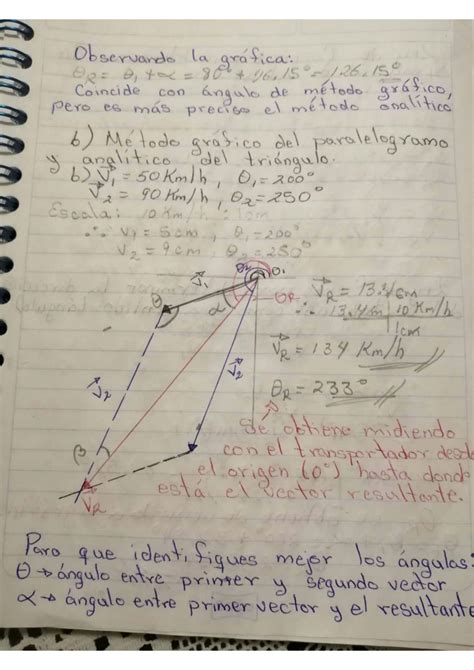 Observando la gráfica:
θR = θ1 + α = 80° + 46.15° = 126.15°
Coincide con ángulo de método gráfico,
pero es más preciso el método analítico
b) Método gráfico del paralelogramo
y analítico del triángulo.
b) V1 = 50 Km/h, θ1 = 200°
V2 = 90 Km/h, θ2 = 250°
Escala: 10 Km/h : 1cm
∴ V1 = 5cm, θ1 = 200°
V2 = 9cm, θ2 = 250°
θ2 θ1
V1
θ α θR
VR = 13.4cm
∴ 13.4cm | 10 Km/h
1cm
VR = 134 Km/h
V2 V2
θR = 233°
β
VR
Se obtiene midiendo
con el transportador desde
el origen (0°) hasta donde
está el vector resultante.
Para que identifiques mejor los ángulos:
θ → ángulo entre primer y segundo vector
α → ángulo entre primer vector y el resultante